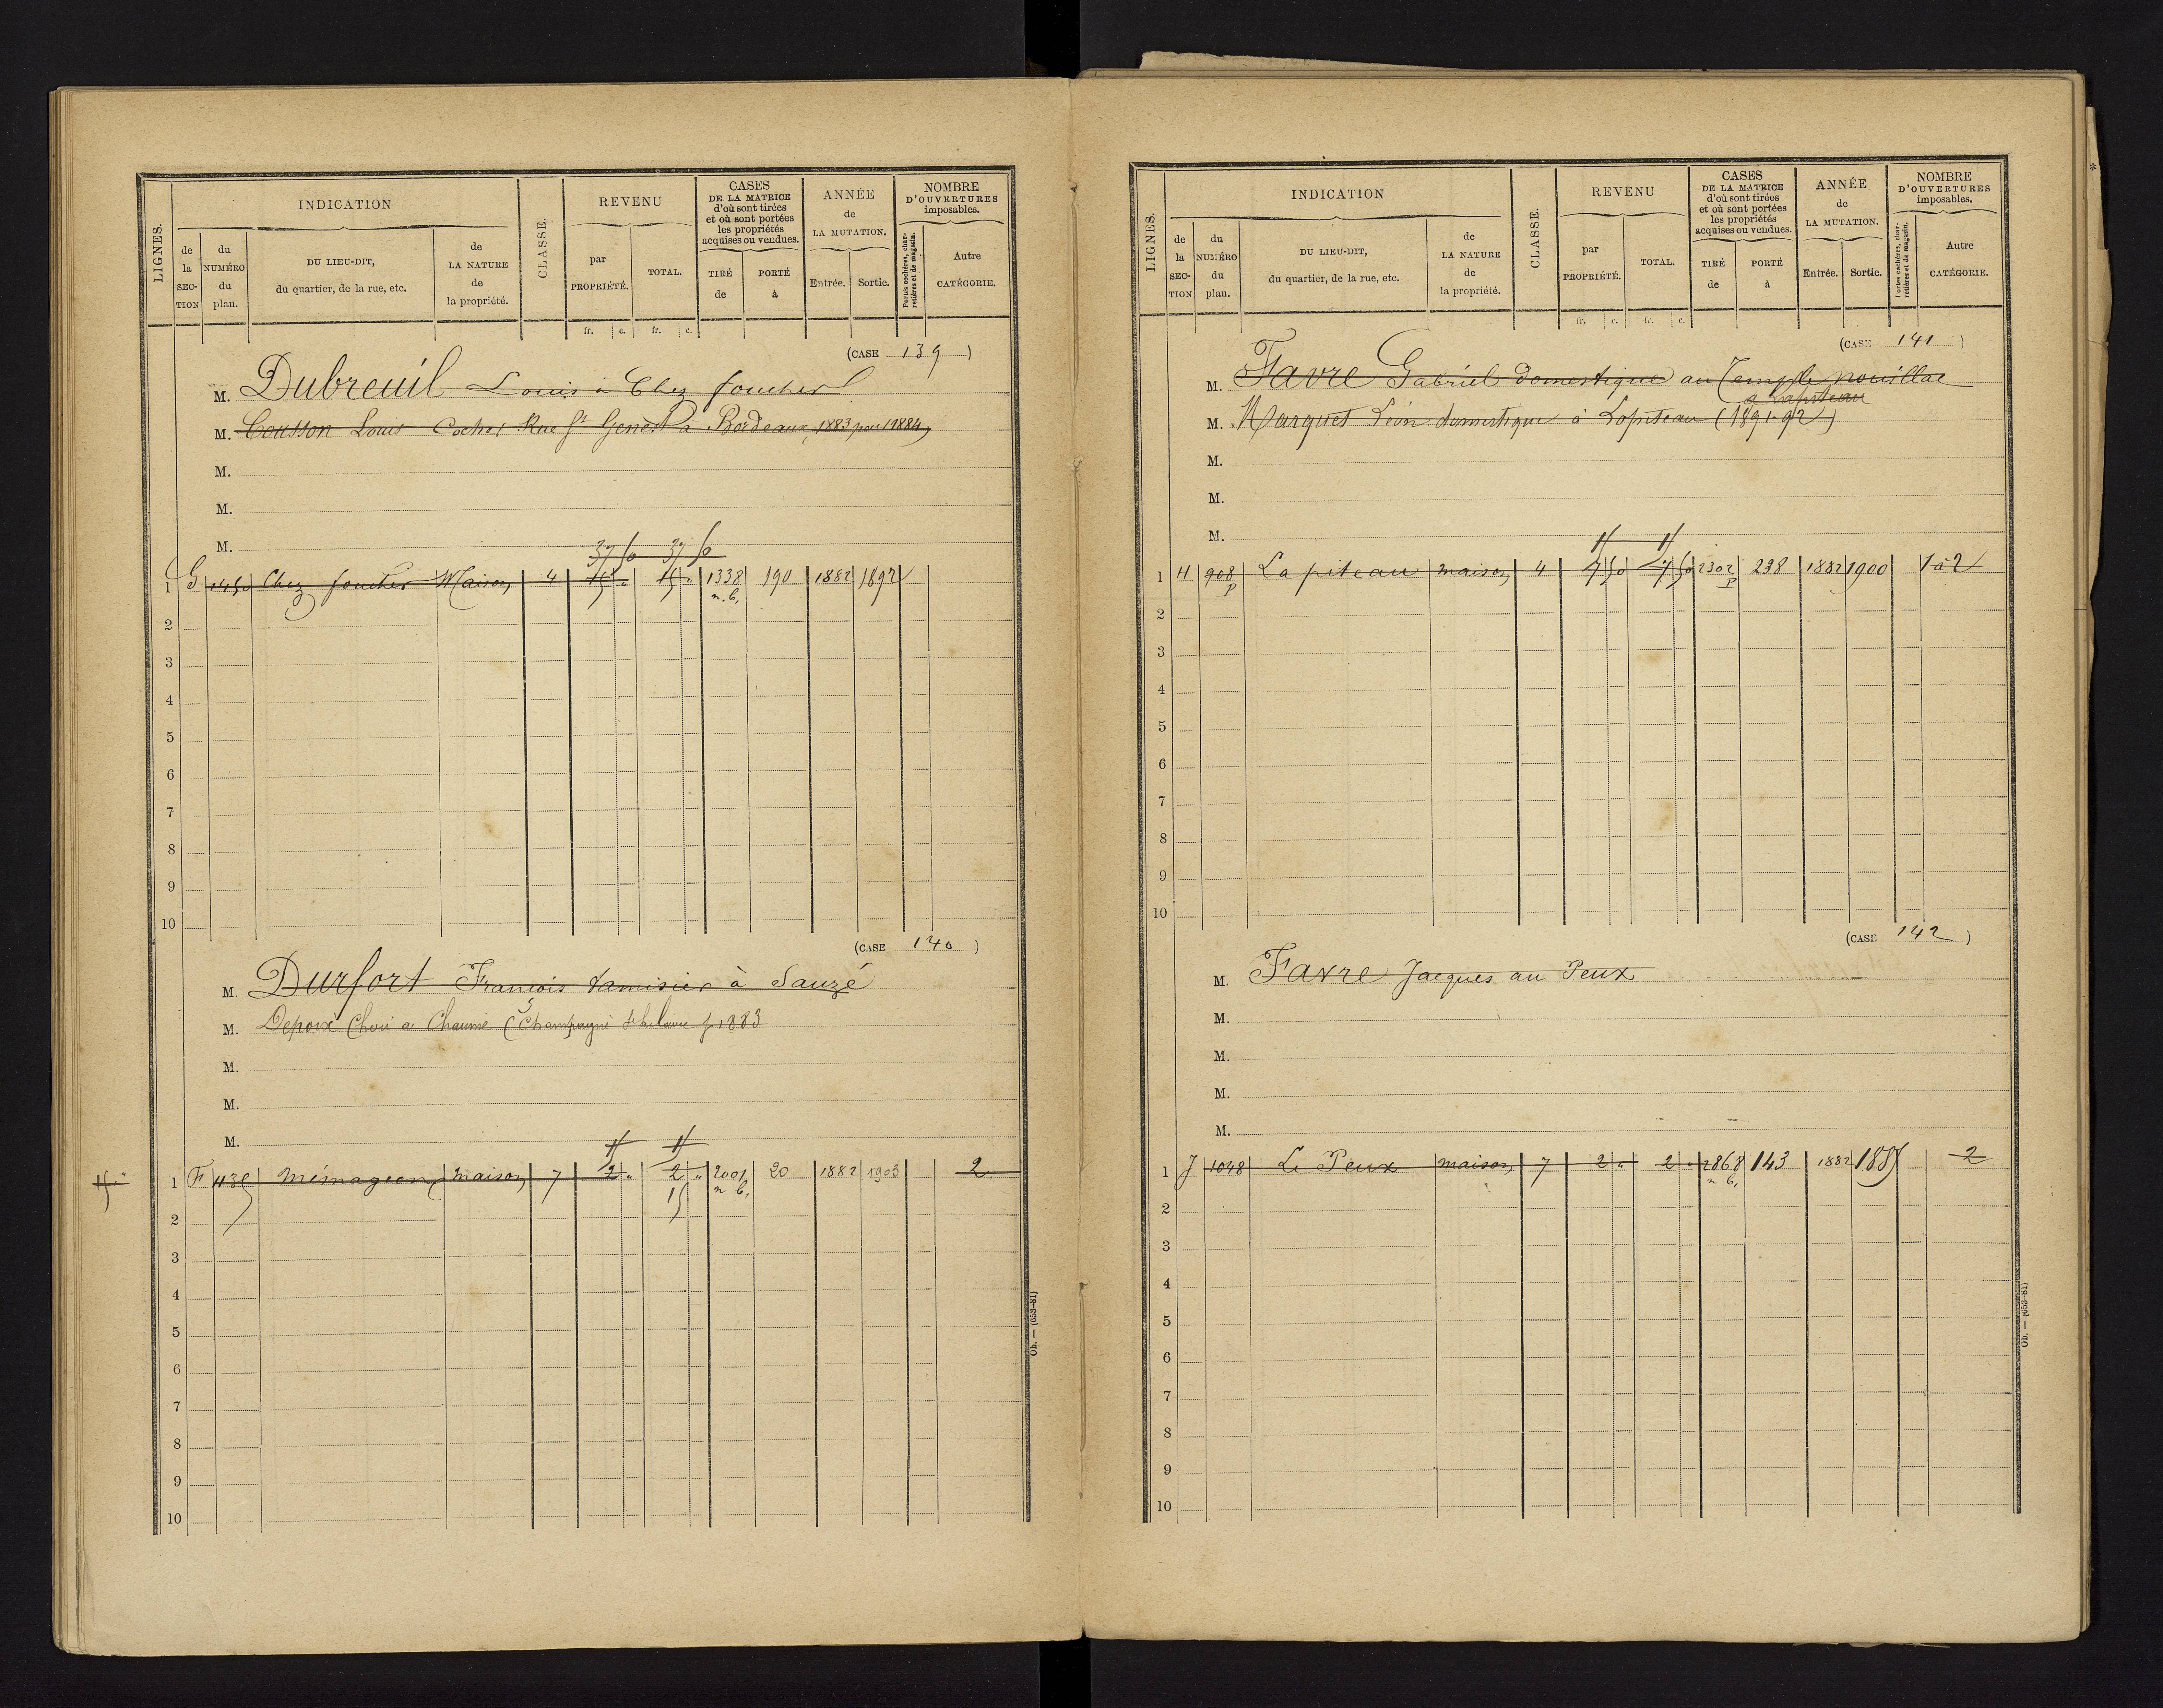 LIGNES.
INDICATION
de la SEC-TION
du NUMÉRO du plan.
DU LIEU-DIT,
du quartier, de la rue, etc.
de LA NATURE de la propriété.
CLASSE.
REVENU
par PROPRIÉTÉ.
TOTAL.
CASES
DE LA MATRICE
d'où sont tirées
et où sont portées
les propriétés
acquises ou vendues.
TIRÉ de
PORTÉ à
ANNÉE
de
LA MUTATION.
Entrée.
Sortie.
NOMBRE
D'OUVERTURES
imposables.
Portes cochères, char-
retières et de magasin.
Autre
CATÉGORIE.
fr. c. fr. c.
(CASE 139)
M. Dubreuil Louis à Chez foucher
M. Cousson Louis Cocher Rue St Genest à Bordeaux, 1883 pour 1884
M.
M.
M.
37 50 37 50
1 G 1450 Chez foucher Maison 4 15 " 15 " 1338 n.b. 190 1882 1892
2
3
4
5
6
7
8
9
10
(CASE 140)
M. Durfort François tamisier à Sauzé
M. Depoix à Chaumé (Champagné p 1883
M.
M.
M.
1 F 435 maison 7 2 " 2 " 2001 n b. 20 1882 1903 2
15
2
3
4
5
6
7
8
9
10
Ob. — (653-81)
LIGNES.
INDICATION
de la SEC-TION
du NUMÉRO du plan.
DU LIEU-DIT,
du quartier, de la rue, etc.
de LA NATURE de la propriété.
CLASSE.
REVENU
par PROPRIÉTÉ.
TOTAL.
CASES
DE LA MATRICE
d'où sont tirées
et où sont portées
les propriétés
acquises ou vendues.
TIRÉ de
PORTÉ à
ANNÉE
de
LA MUTATION.
Entrée.
Sortie.
NOMBRE
D'OUVERTURES
imposables.
Portes cochères, char-
retières et de magasin.
Autre
CATÉGORIE.
fr. c. fr. c.
(CASE 141)
M. Favre Gabriel domestique au Temple nouillac
à Lapiteau
M. Marquet Léon domestique à Lapiteau (1891-92)
M.
M.
M.
1 H 908 p Lapiteau maison 4 7 50 7 50 2302 p 238 1882 1900 1 à 2
2
3
4
5
6
7
8
9
10
(CASE 142)
M. Favre Jacques au Peux
M.
M.
M.
M.
1 J 1048 Le Peux maison 7 2 " 2 " 2868 n b. 143 1882 1885 2
2
3
4
5
6
7
8
9
10
Ob. — (653-81)